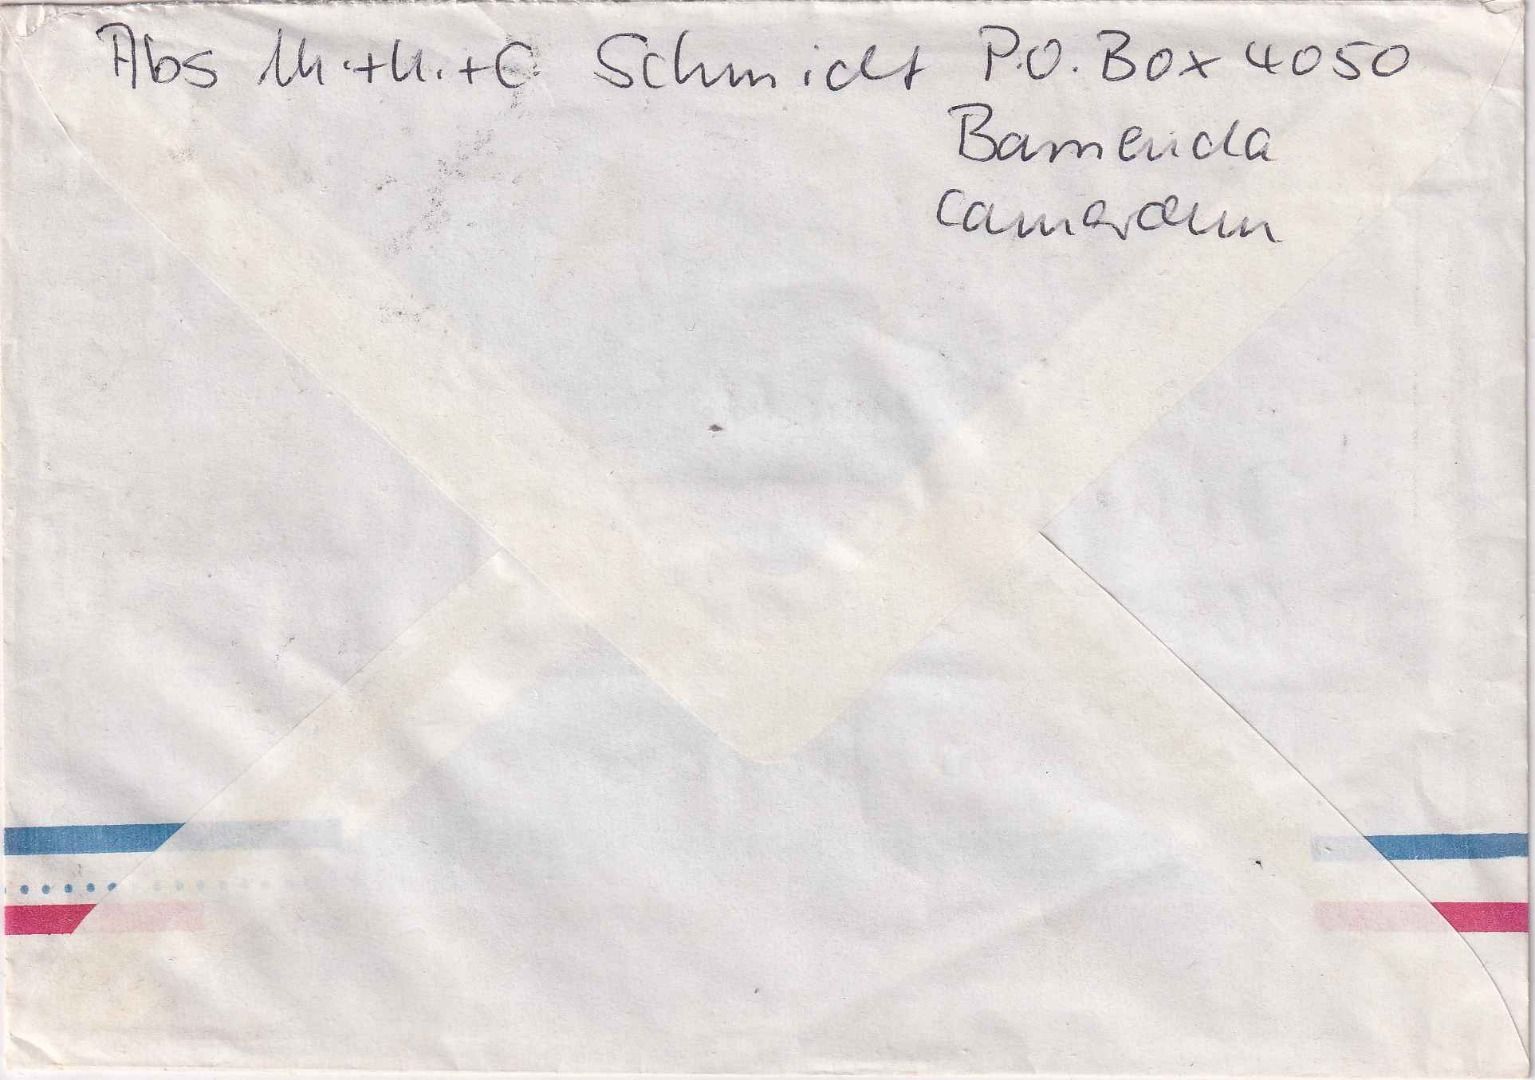 Abs M.+M.+C Schmidt P.O. Box 4050
Bamenda
Cameroun